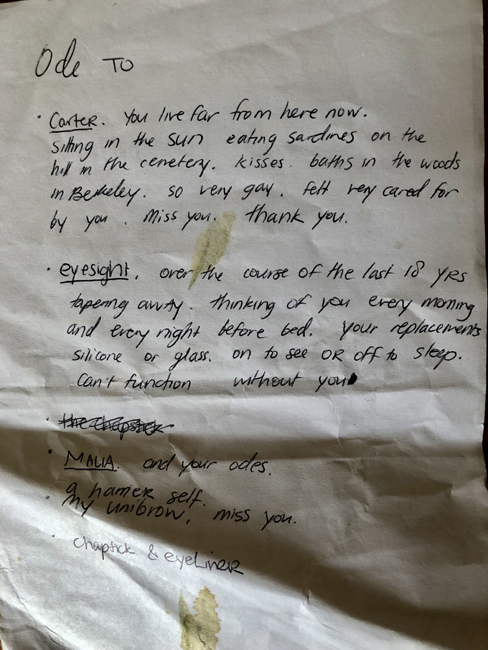 Ode TO
• Carter. You live far from here now.
sitting in the sun eating sardines on the
hill in the cemetery. kisses. baths in the woods
in Berkeley. so very gay. felt very cared for
by you. Miss you. thank you.
• eyesight, over the course of the last 18 yrs
tapering away. thinking of you every morning
and every night before bed. your replacements
silicone or glass. on to see OR off to sleep.
can't function without you
• the chapstick
• MALIA. and your odes.
a harrier self.
• My unibrow, miss you.
• chaptick & eyeLiner